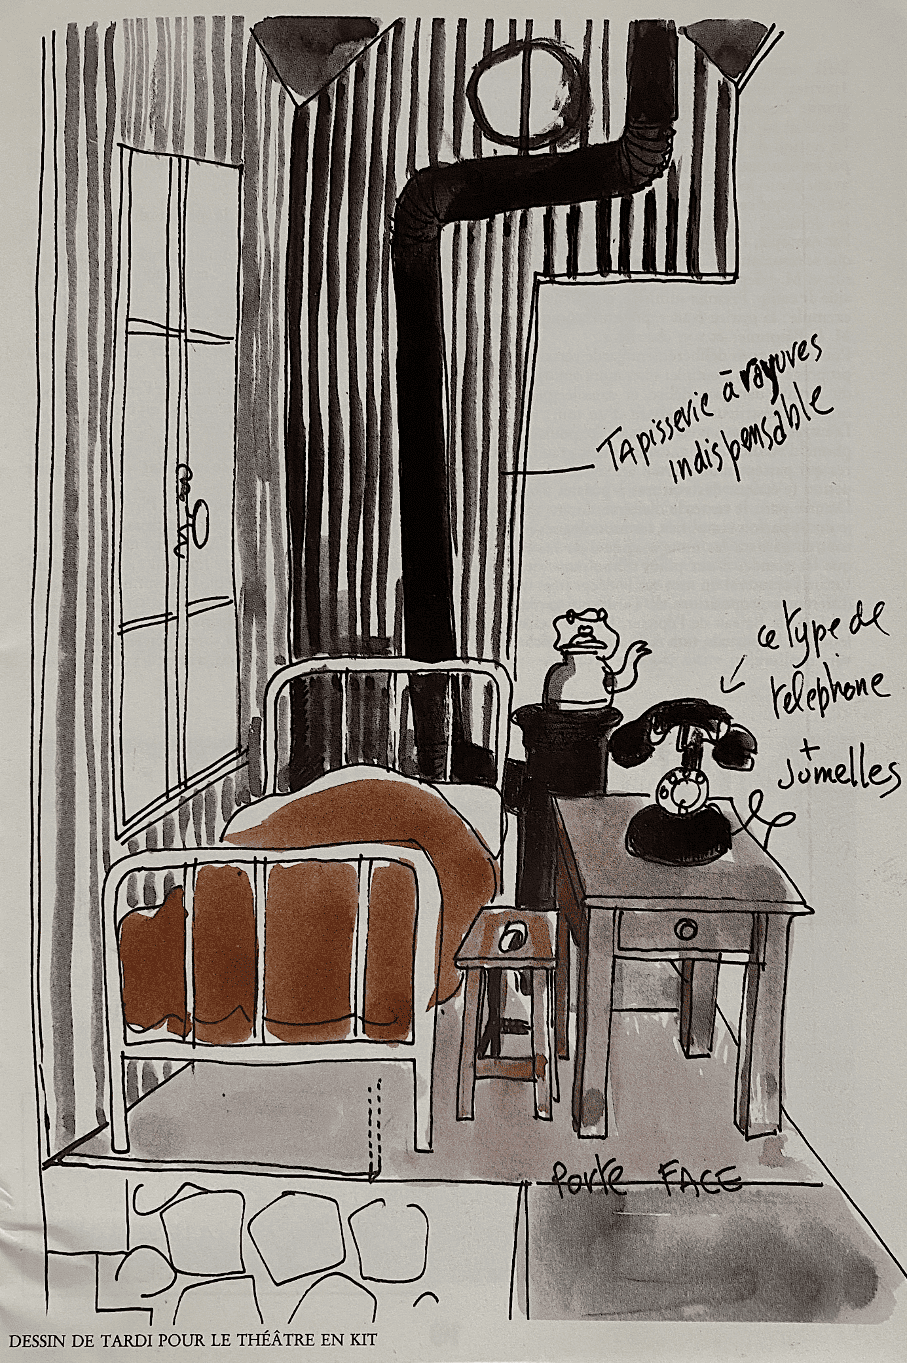 Tapisserie à rayures
indispensable
ce type de
telephone
+
Jumelles
Porte FACE
DESSIN DE TARDI POUR LE THÉÂTRE EN KIT